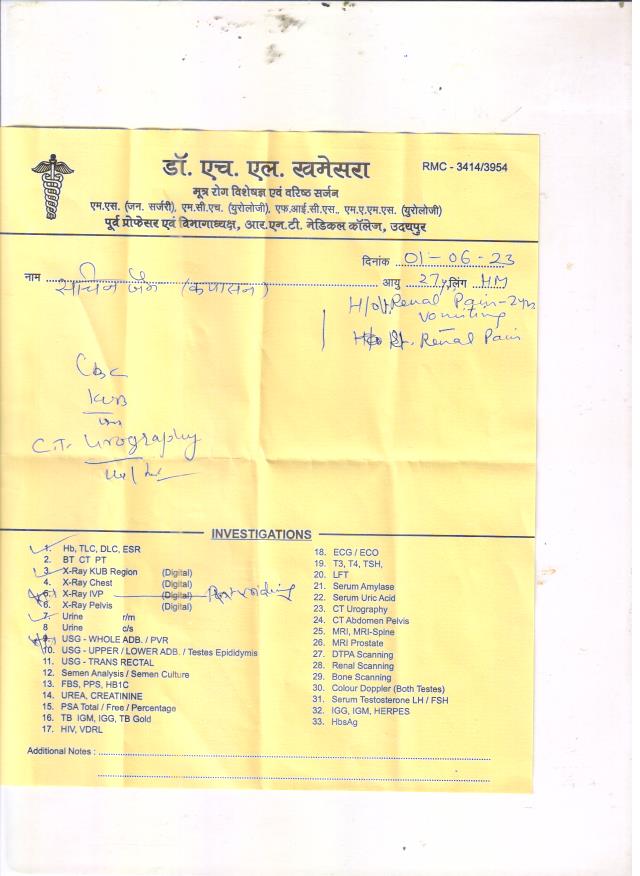 डॉ. एच. एल. खमेसरा
RMC - 3414/3954
मूत्र रोग विशेषज्ञ एवं वरिष्ठ सर्जन
एम.एस. (जन. सर्जरी), एम.सी.एच. (युरोलोजी), एफ.आई.सी.एस., एम.ए.एम.एस. (युरोलोजी)
पूर्व प्रोफेसर एवं विभागाध्यक्ष, आर.एन.टी. मेडिकल कॉलेज, उदयपुर
दिनांक 01-06-23
नाम सचिन जैन (कपासन) आयु 27 लिंग
Renal Pain - 2yrs
vomiting
Rt. Renal Pain
CBC
KUB
C.T. Urography
INVESTIGATIONS
1. Hb, TLC, DLC, ESR
2. BT CT PT
3. X-Ray KUB Region (Digital)
4. X-Ray Chest (Digital)
5. X-Ray IVP (Digital) Post voiding
6. X-Ray Pelvis (Digital)
7. Urine r/m
8 Urine c/s
9. USG - WHOLE ADB. / PVR
10. USG - UPPER / LOWER ADB. / Testes Epididymis
11. USG - TRANS RECTAL
12. Semen Analysis / Semen Culture
13. FBS, PPS, HB1C
14. UREA, CREATININE
15. PSA Total / Free / Percentage
16. TB IGM, IGG, TB Gold
17. HIV, VDRL
18. ECG / ECO
19. T3, T4, TSH,
20. LFT
21. Serum Amylase
22. Serum Uric Acid
23. CT Urography
24. CT Abdomen Pelvis
25. MRI, MRI-Spine
26. MRI Prostate
27. DTPA Scanning
28. Renal Scanning
29. Bone Scanning
30. Colour Doppler (Both Testes)
31. Serum Testosterone LH / FSH
32. IGG, IGM, HERPES
33. HbsAg
Additional Notes :